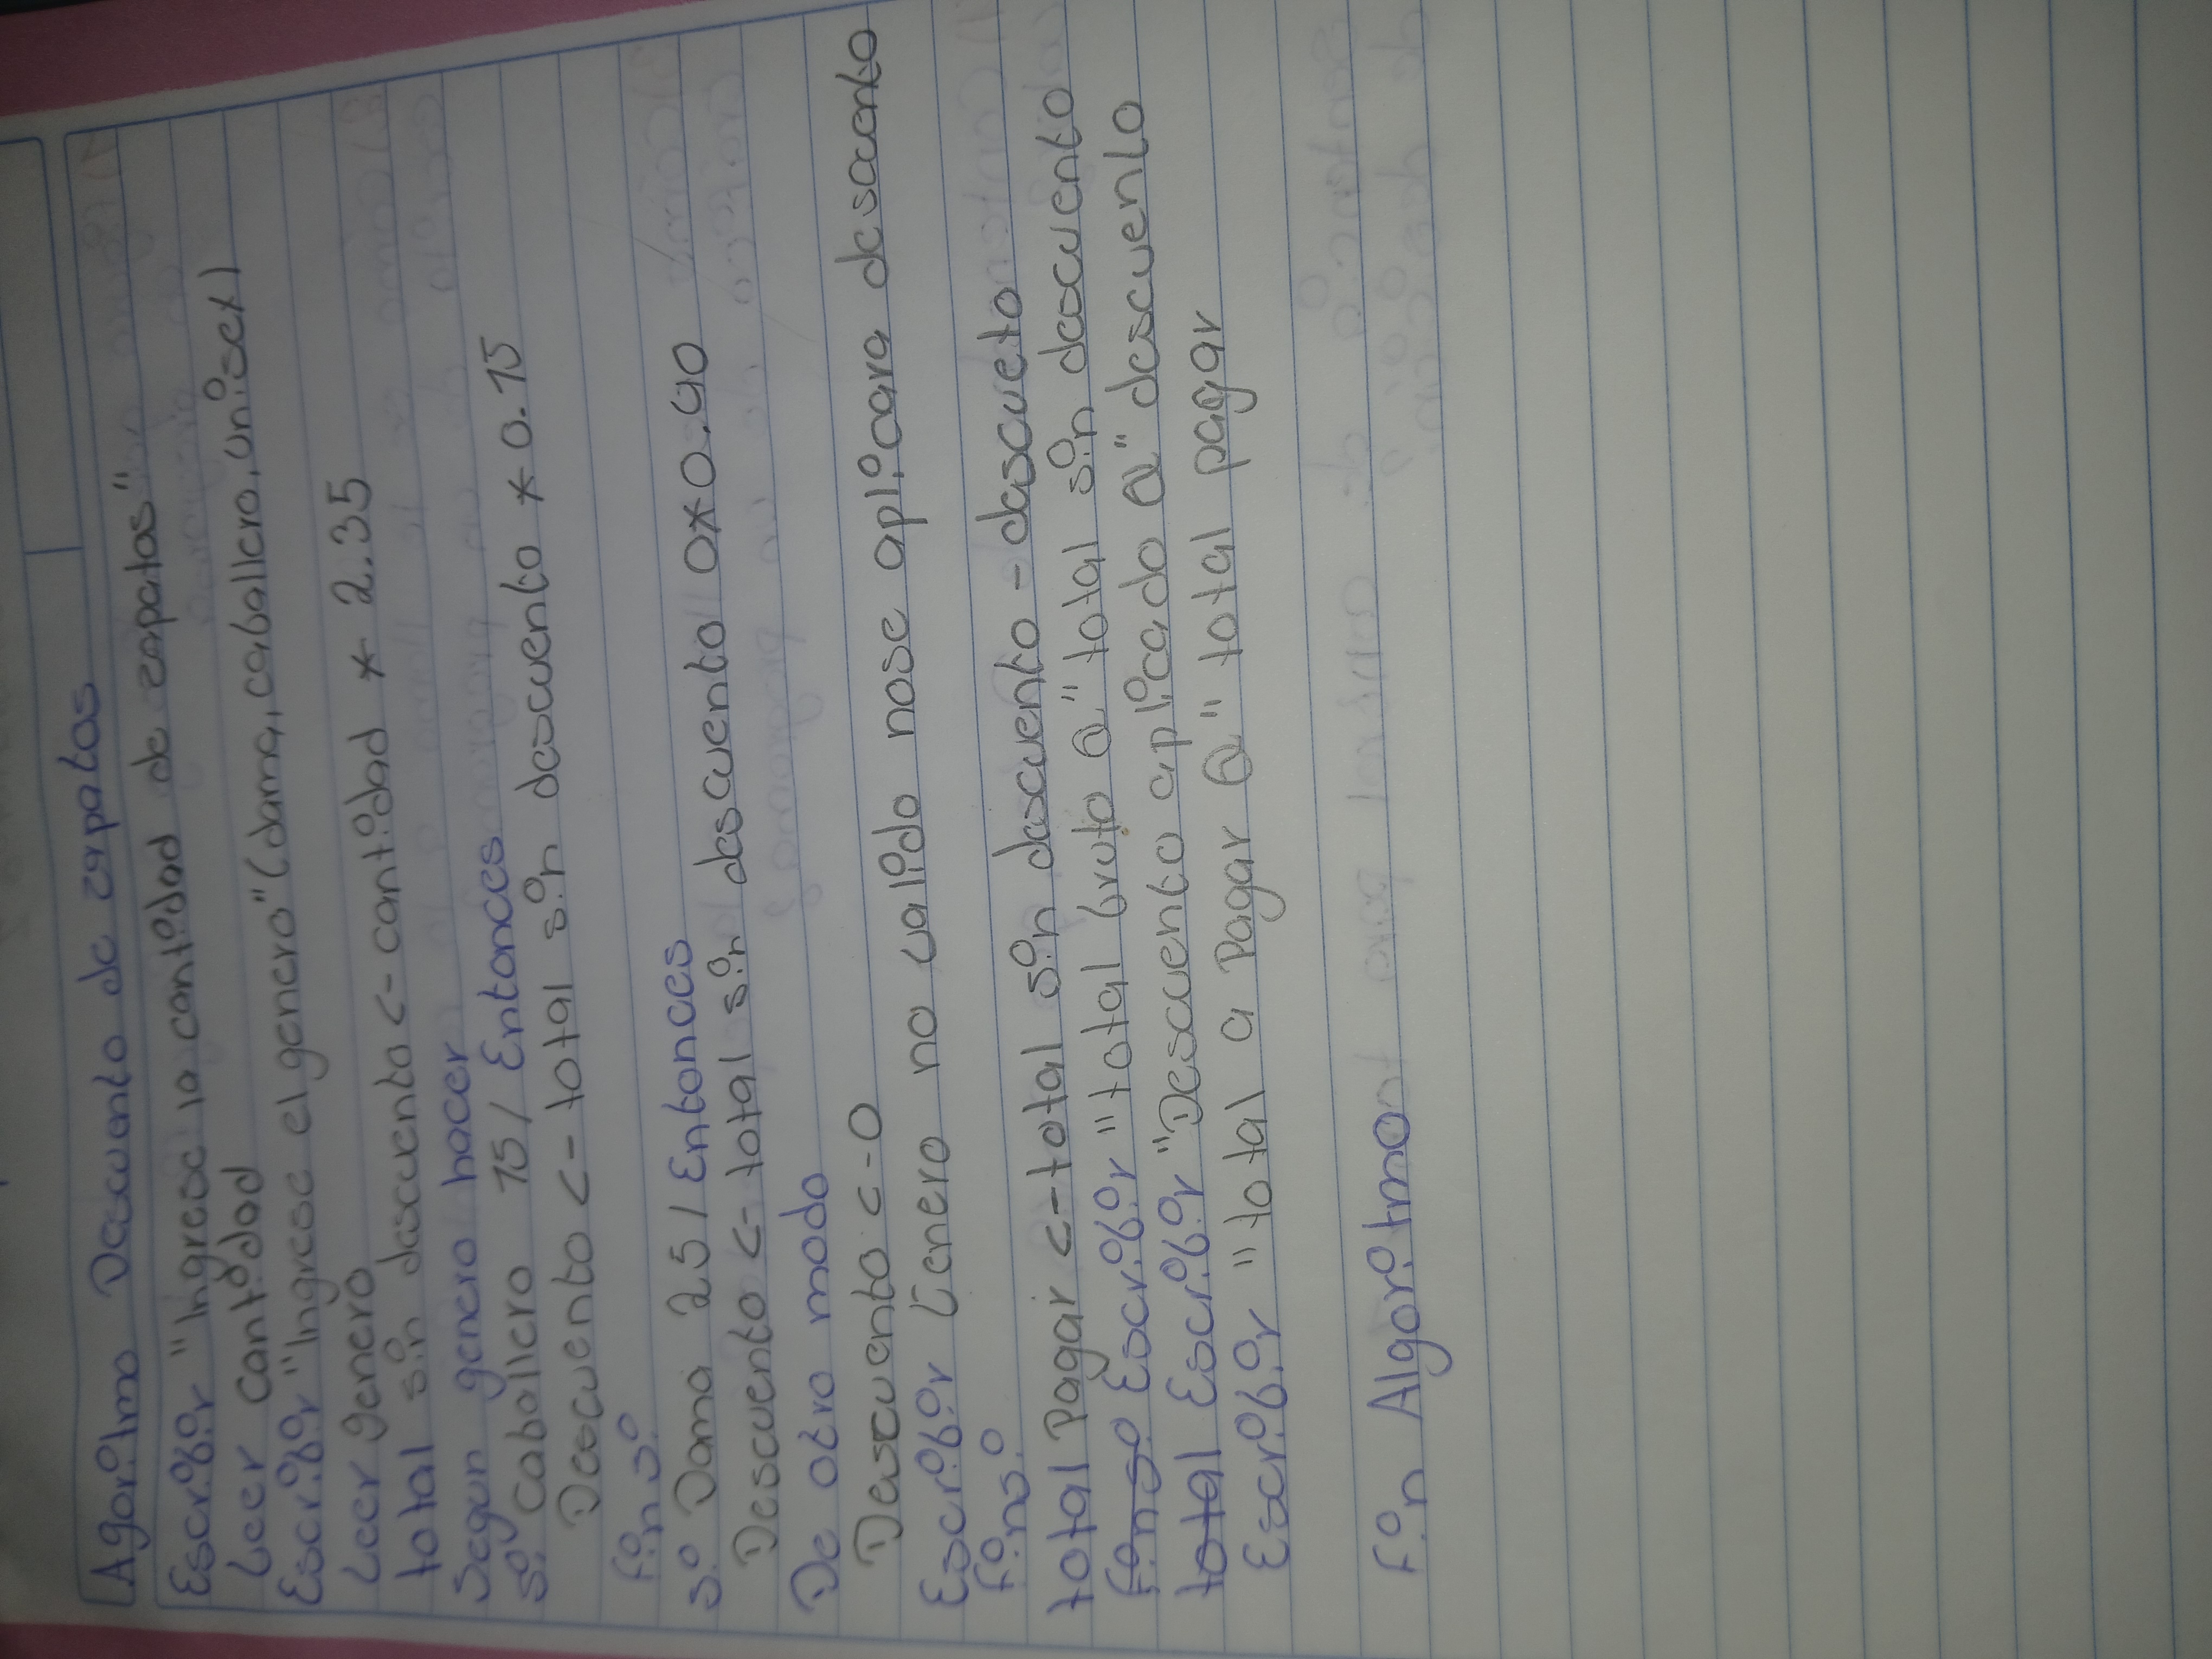 Agoritmo Descuento de zapatos
Escribir "Ingrese la cantidad de zapatos"
Leer cantidad
Escribir "Ingrese el genero" (dama, caballero, unisex)
Leer genero
total sin descuento <- cantidad * 2.35
Segun genero hacer
si caballero 15/ Entonces
Descuento <- total sin descuento * 0.15
finsi
si Dama 25/ Entonces
Descuento <- total sin descuento 0*0.40
De otro modo
Descuento <-0
Escribir Genero no valido nose aplicara descuento
finsi
total Pagar <- total sin descuento - descueto
finso Escribir "total bruto a" total sin descuento
total Escribir "Descuento aplicado a" descuento
Escribir "total a Pagar a" total pagar
fin Algoritmo